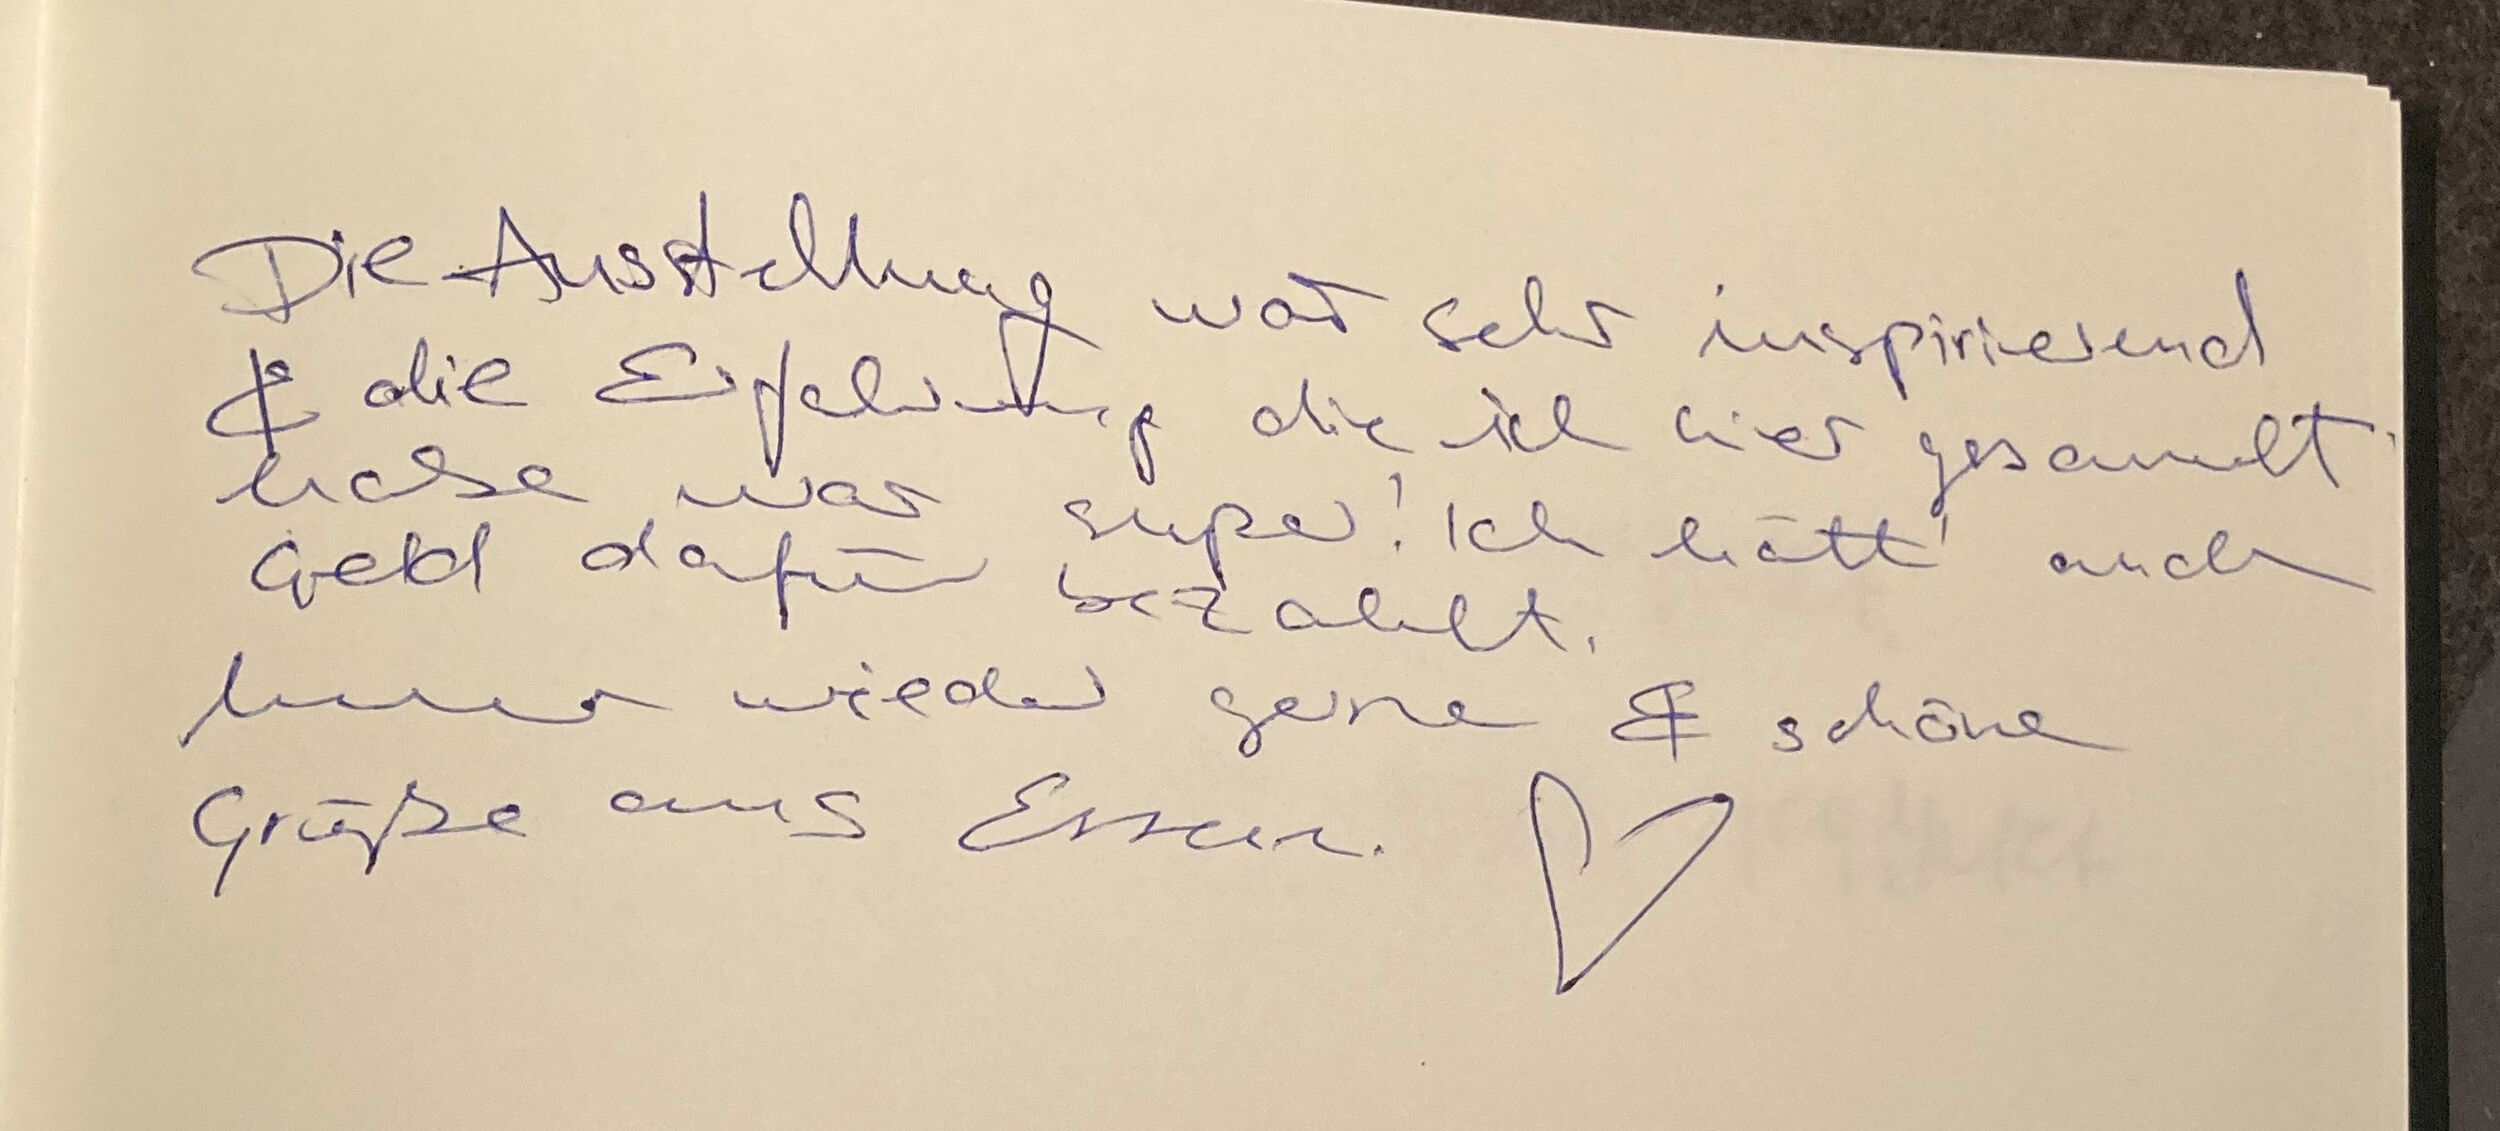 Die Ausstellung war sehr inspirierend
& die Erfahrung die ich hier gesammelt
habe war super! Ich hätt' auch
Geld dafür bezahlt.
Immer wieder gerne & schöne
Grüße aus Essen.